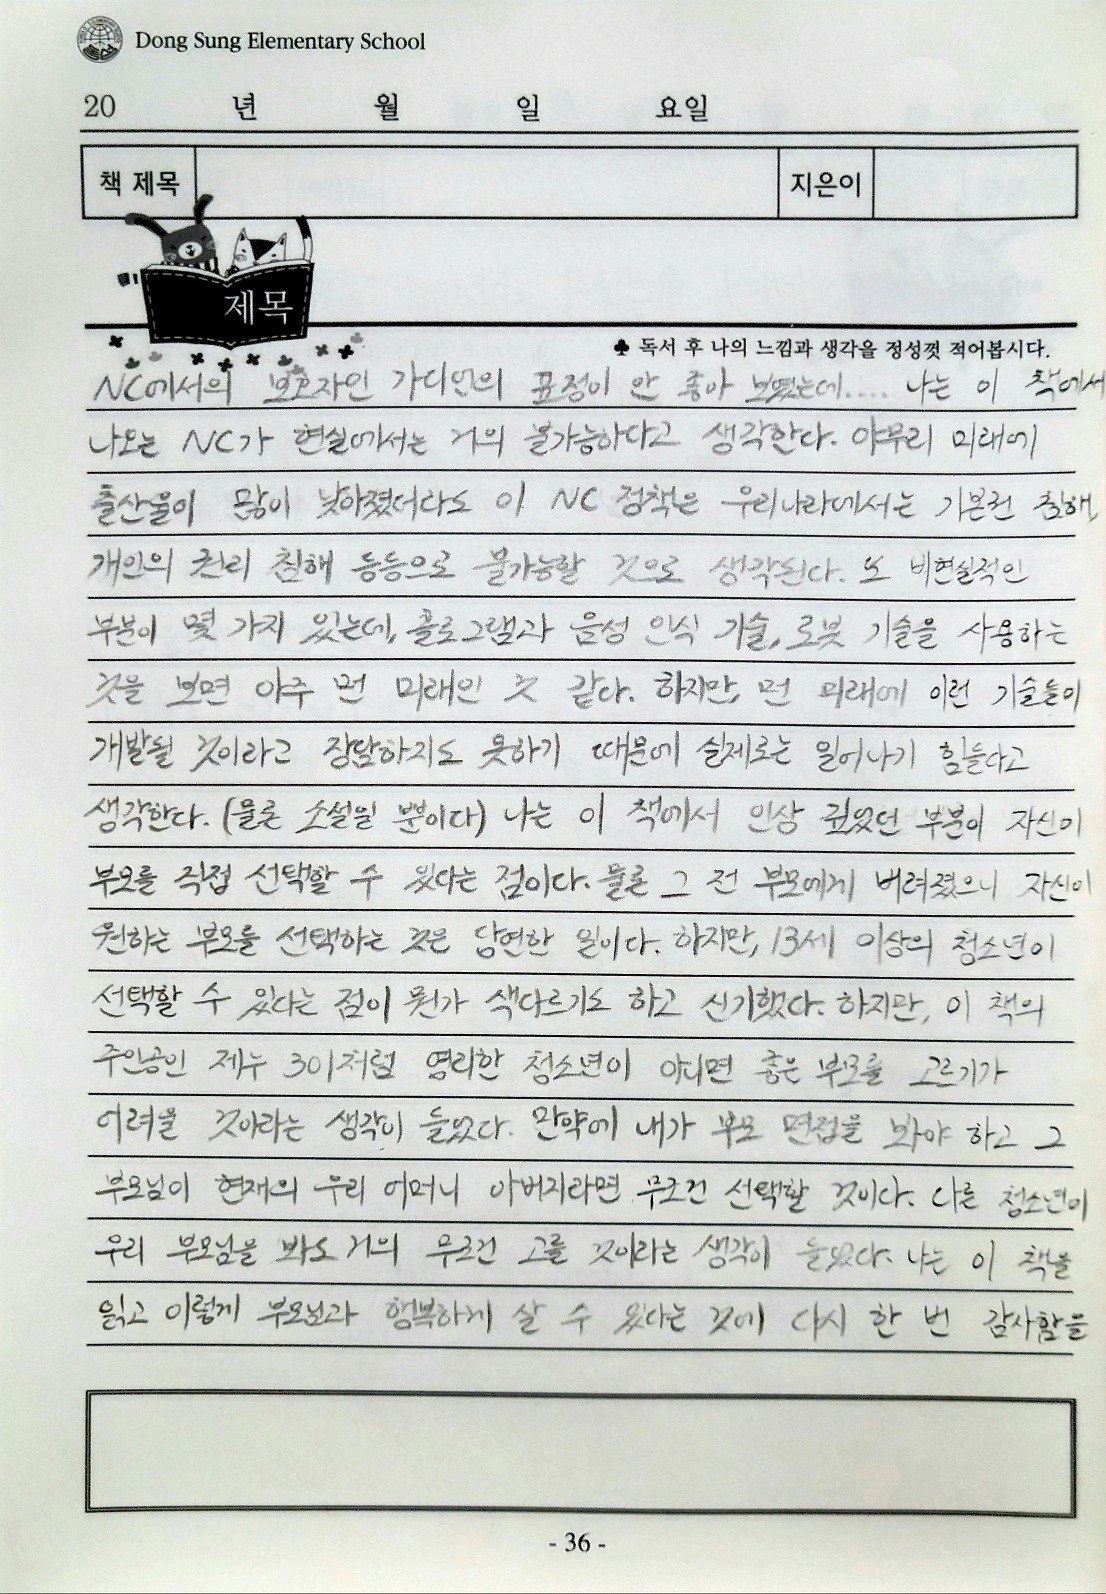 Dong Sung Elementary School
20 년 월 일 요일
책 제목 지은이
제목
♣ 독서 후 나의 느낌과 생각을 정성껏 적어봅시다.
NC에서의 보호자인 가디언의 표정이 안 좋아 보였는데.... 나는 이 책에서
나오는 NC가 현실에서는 거의 불가능하다고 생각한다. 아무리 미래에
출산율이 많이 낮아졌더라도 이 NC 정책은 우리나라에서는 기본권 침해,
개인의 권리 침해 등등으로 불가능할 것으로 생각된다. 또 비현실적인
부분이 몇 가지 있는데, 홀로그램과 음성 인식 기술, 로봇 기술을 사용하는
것을 보면 아주 먼 미래인 것 같다. 하지만, 먼 미래에 이런 기술들이
개발될 것이라고 장담하지도 못하기 때문에 실제로는 일어나기 힘들다고
생각한다. (물론 소설일 뿐이다) 나는 이 책에서 인상 깊었던 부분이 자신이
부모를 직접 선택할 수 있다는 점이다. 물론 그 전 부모에게 버려졌으니 자신이
원하는 부모를 선택하는 것은 당연한 일이다. 하지만, 13세 이상의 청소년이
선택할 수 있다는 점이 뭔가 색다르기도 하고 신기했다. 하지만, 이 책의
주인공인 제누 301처럼 영리한 청소년이 아니면 좋은 부모를 고르기가
어려울 것이라는 생각이 들었다. 만약에 내가 부모 면접을 봐야 하고 그
부모님이 현재의 우리 어머니 아버지라면 무조건 선택할 것이다. 다른 청소년이
우리 부모님을 봐도 거의 무조건 고를 것이라는 생각이 들었다. 나는 이 책을
읽고 이렇게 부모님과 행복하게 살 수 있다는 것에 다시 한 번 감사함을
- 36 -